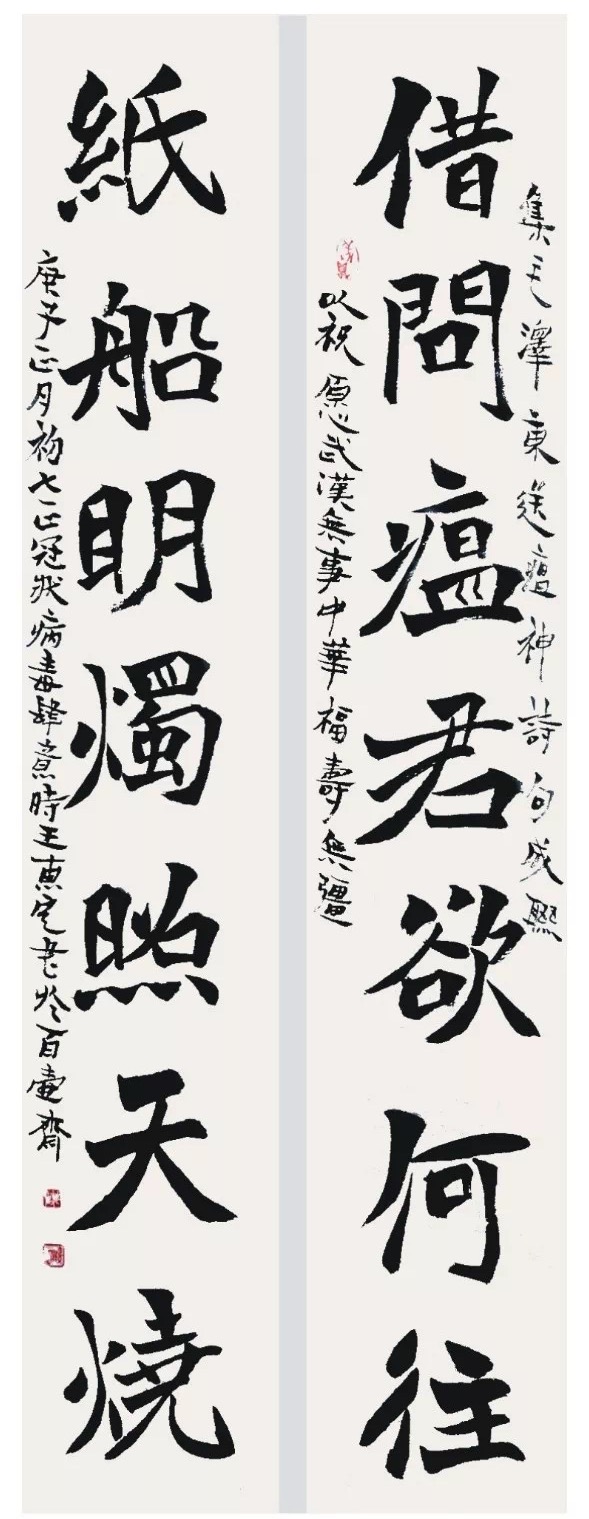 集毛澤東送瘟神詩句成聯
借問瘟君欲何往
以祝愿武漢無事中華福壽無疆
紙船明燭照天燒
庚子正月初七正冠狀病毒肆意時王惠定書於百壺齋